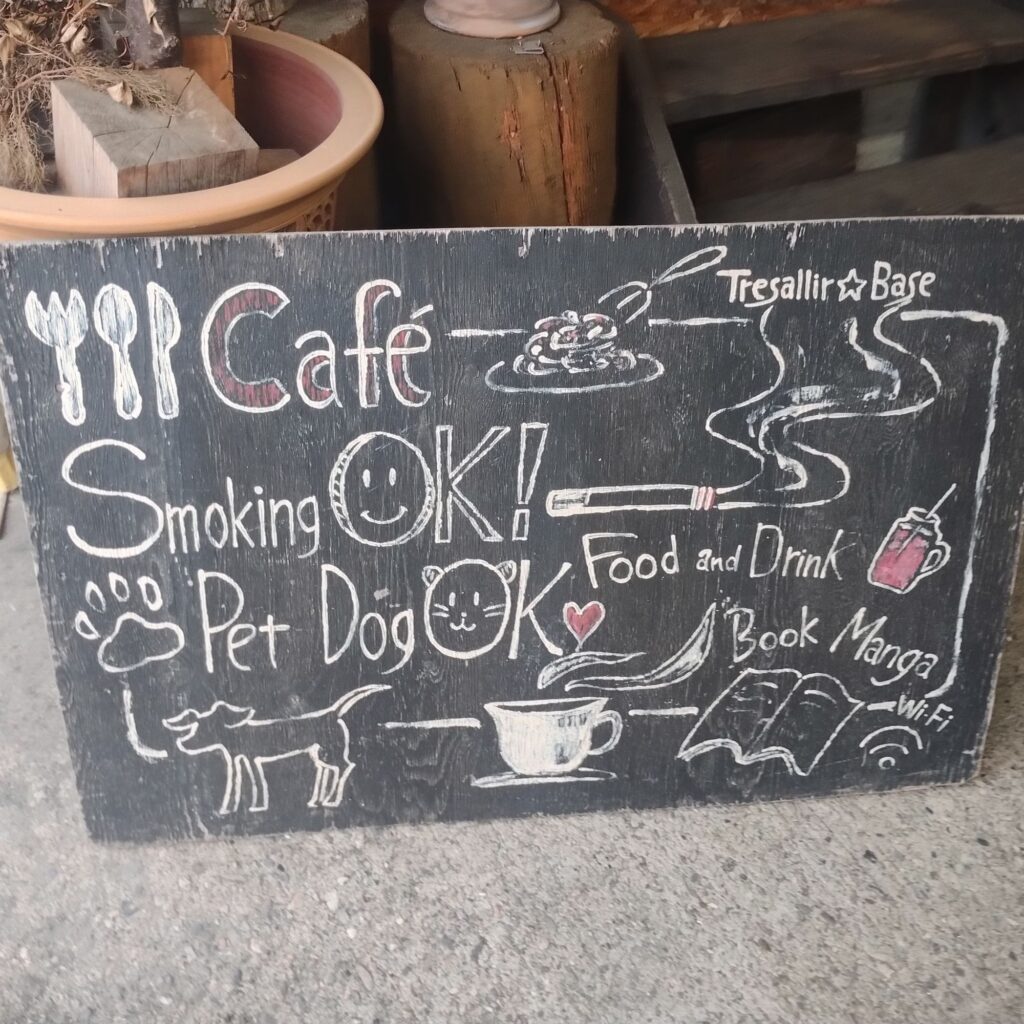 Tresallir☆Base
Café
Smoking OK!
Food and Drink
Pet Dog OK
Book Manga
Wi-Fi